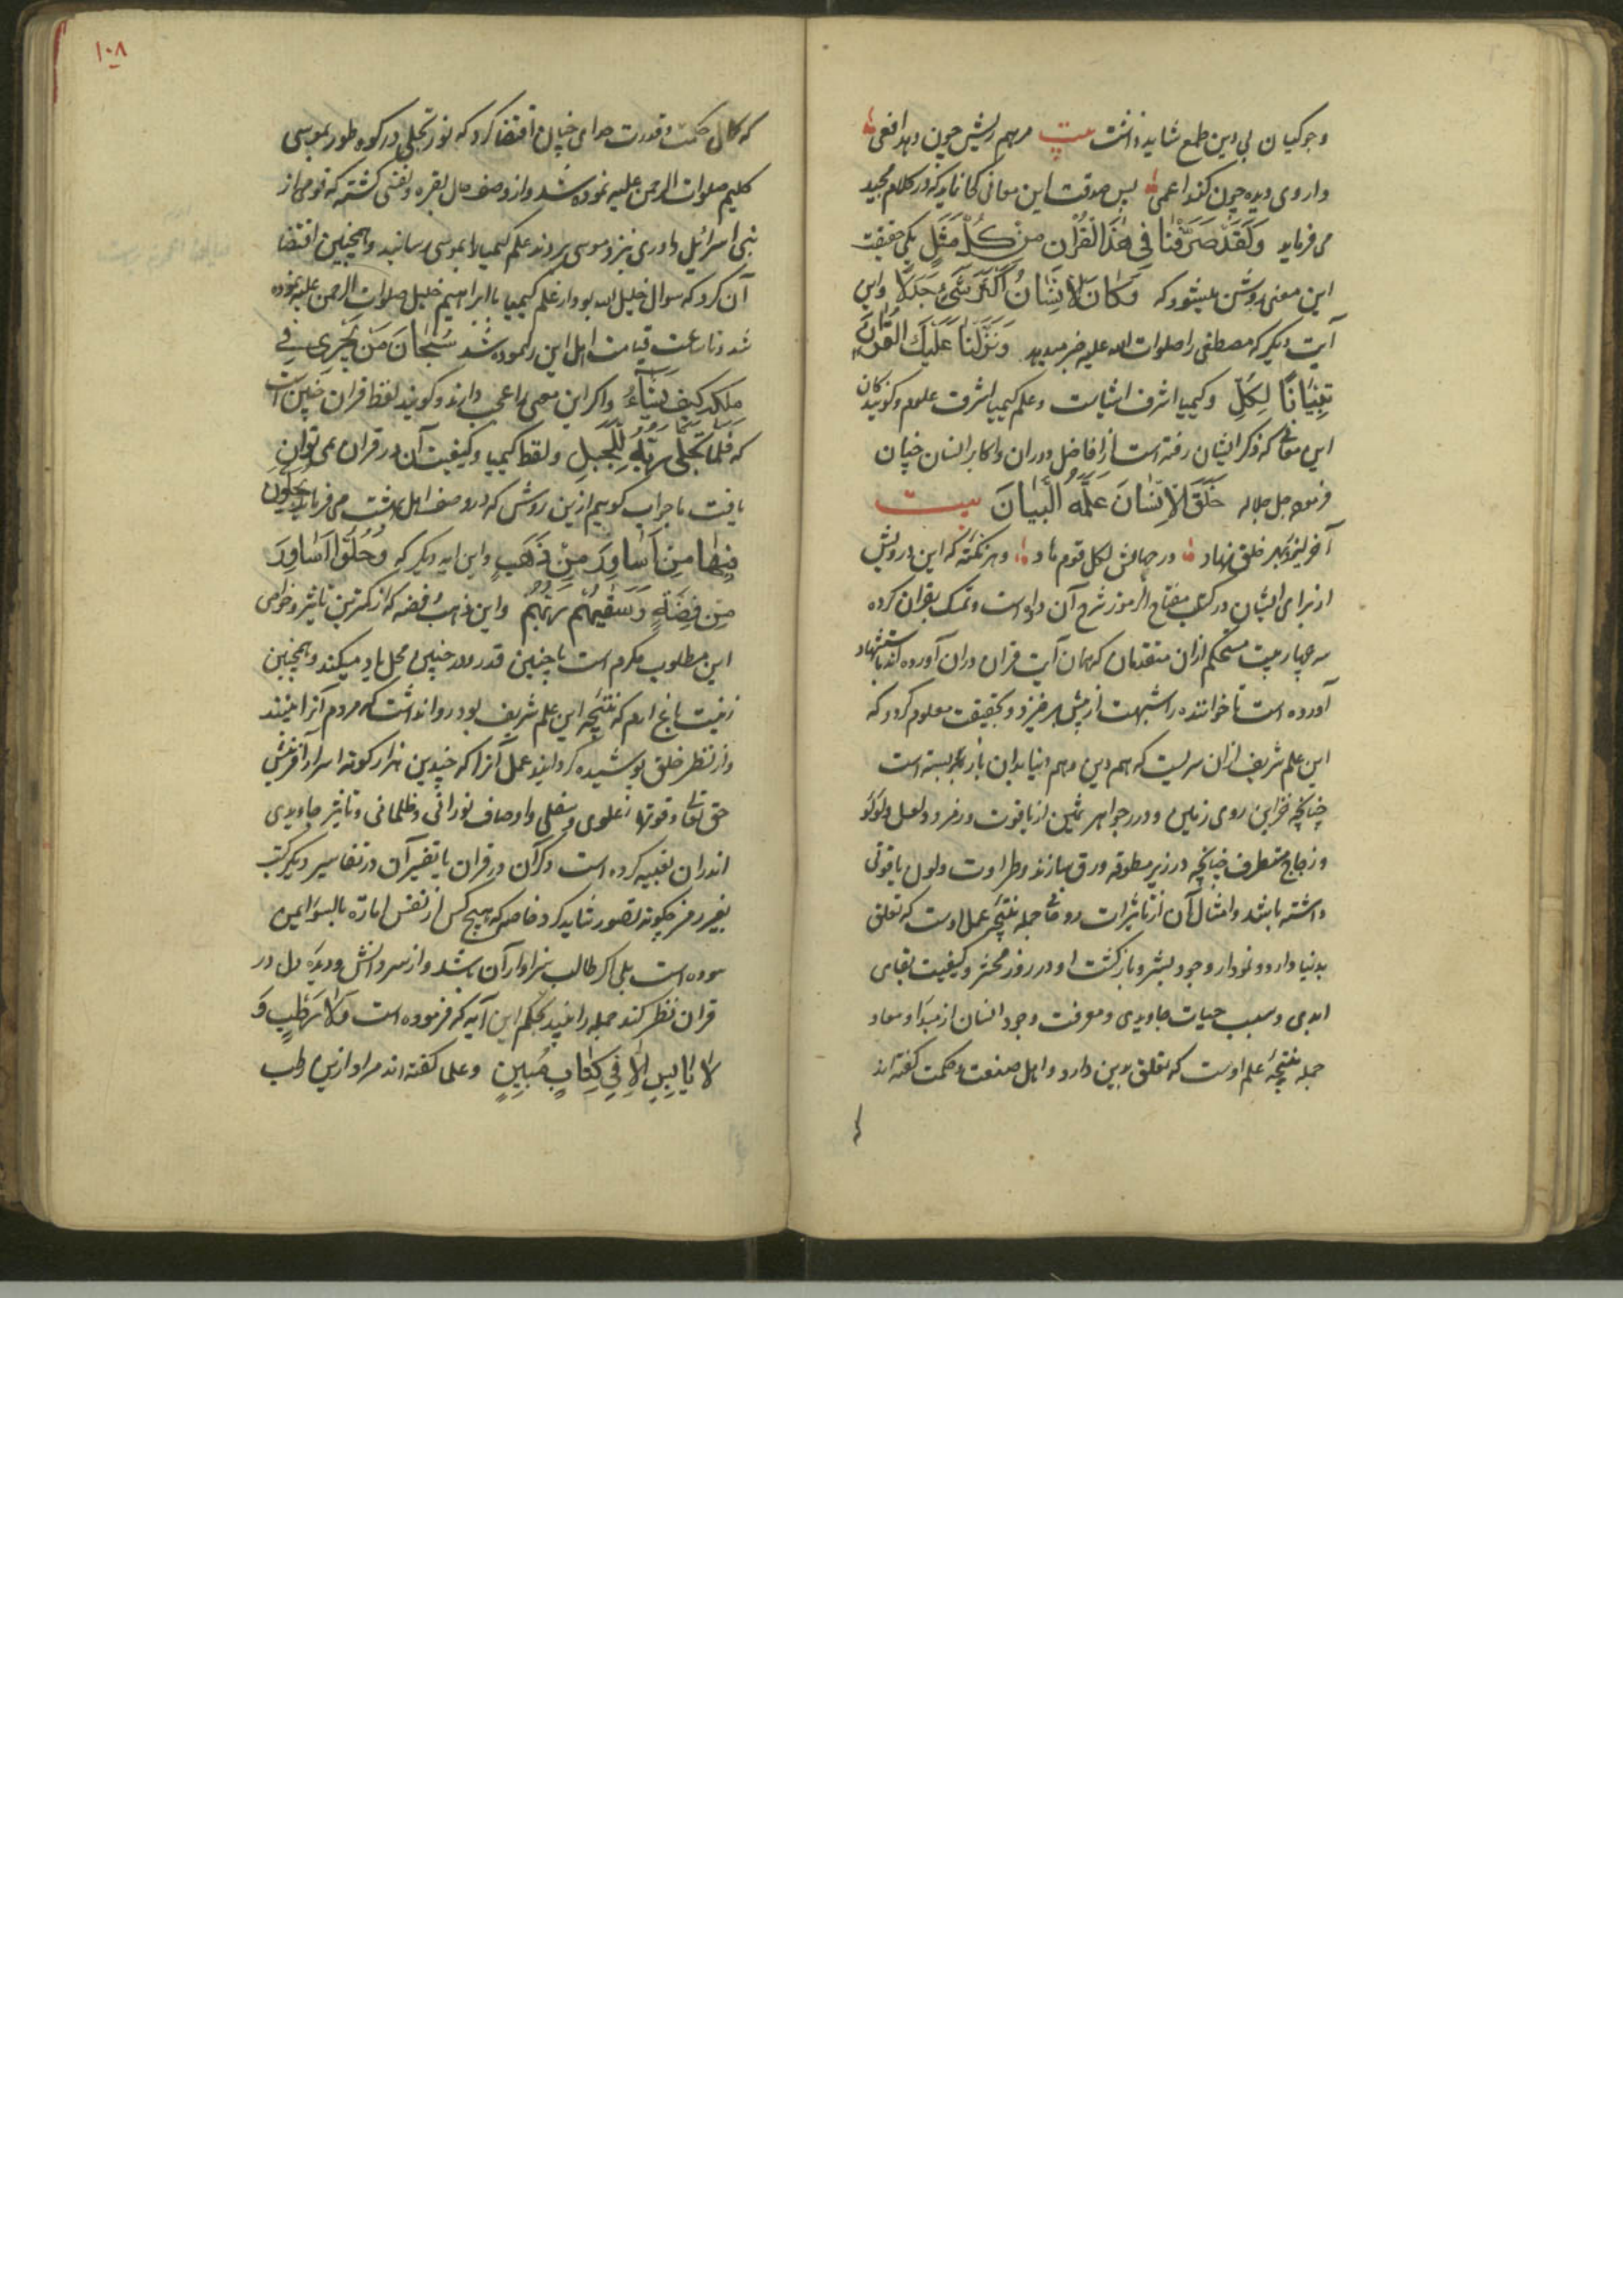 وجوکیان بی دین طمع شاید داشت بیت مرهم ریش چون دهد افعی
داروی دیده چون کند اعمی پس صدقت این معانی کما نماید که در کلام مجید
می فرماید وَلَقَدْ صَرَّفْنَا فِی هٰذَا الْقُرْآنِ مِنْ كُلِّ مَثَلٍ یکی حقیقت
این معنی روشن میشود که وَكَانَ الْاِنْسَانُ اَكْثَرَ شَیْءٍ جَدَلًا واین
آیت دیگر که مصطفی را صلوات الله علیه خبر میدهد وَنَزَّلْنَا عَلَیْكَ الْقُرْآنَ
تِبْیَانًا لِكُلِّ وکیمیا اشرف اشیاست وعلم کیمیا اشرف علوم وکونیدکان
این معانی که ذکر ایشان رفته است از افاضل دوران واکابر انسان چنان
فرموده جل جلاله خَلَقَ الْاِنْسَانَ عَلَّمَهُ الْبَیَانَ بیت
در جهانش لکل قوم هاد وهر نکته که این درویش
از برای ایشان در کتاب مفتاح الرموز شرح آن داده است وتمسک بقران کرده
سه چهار بیت مستحکم ازان متقدمان که همان آیت قران دران آورده اند باستشهاد
آورده است تا خواننده را شبهت از پیش برخیزد وبحقیقت معلوم کردد که
این علم شریف ازان سریست که هم دین وهم دنیا بدان باز بسته است
چنانچه خزاین روی زمین ودرر جواهر ثمین از یاقوت وزمرد ولعل ولؤلؤ
وزجاج منطرف چنانچه در زیر مطرقه ورق سازند وطراوت ولون یاقوتی
داشته باشد وامثال آن از تاثیرات روحانی جمله نتیجه عمل اوست که تعلق
بدنیا دارد ونمودار وجود بشر وبازکشت او در روز محشر وکیفیت بقای
ابدی وسبب حیات جاویدی ومعرفت وجود انسان از مبدا ومعاد
جمله نتیجه علم اوست که تعلق بدین دارد واهل صنعت وحکمت کفته اند
۱۰۸
که کمال حکمت وقدرت خدای چنان اقتضا کرد که نور تجلی در کوه طور بموسی
کلیم صلوات الرحمن علیه نموده شد واز وصف حال بقره ونفس کشته که قومی از
بنی اسرائیل داوری نزد موسی بردند علم کیمیا بموسی رسانید وهمچنین اقتضا
آن کرد که سوال خلیل الله بود از علم کیمیا با ابراهیم خلیل صلوات الرحمن علیه نموده
شد وتا ساعت قیامت اهل این را نموده شد سُبْحَانَ مَنْ یَجْرِی فِی
مُلْكِهِ كَیْفَ یَشَآءُ واکر این معنی را عجب دارند وکویند لفظ قران چنین است
که فَلَمَّا تَجَلَّی رَبُّهُ لِلْجَبَلِ ولفظ کیمیا وکیفیت آن در قران نمی توان
یافت ما جواب کوییم ازین روش که در وصف اهل بهشت می فرماید یُحَلَّوْنَ
فِیهَا مِنْ اَسَاوِرَ مِنْ ذَهَبٍ واین ایه دیکر که وَحُلُّوا اَسَاوِرَ
مِنْ فِضَّةٍ وَسَقَیهُمْ رَبُّهُمْ واین ذهب وفضه که از کمترین تاثیر وخواص
این مطلوب مکرم است با چنین قدر در چنین محل یاد میکند وهمچنین
زینت باغ ارم که نتیجه این علم شریف بود روا نداشت که مردم آنرا بینند
واز نظر خلق پوشیده کردانید عمل آنرا که چندین هزار کونه اسرار آفرینش
حق تعالی وقوتهاء علوی وسفلی واوصاف نورانی وظلمانی وتاثیر جاویدی
اندران تعبیه کرده است ذکر آن در قران یا تفسیر آن در تفاسیر دیکر کتب
بغیر رمز چکونه تصور شاید کرد خاصه که هیچ کس از نفس اماره بالسوء ایمن
نبوده است بلی اکر طالب سزاوار آن باشد واز سر دانش ودیده دل در
قران نظر کند جمله را بیند بحکم این آیه که فرموده است وَلَا رَطْبٍ وَ
لَا یَابِسٍ اِلَّا فِی كِتَابٍ مُبِینٍ وعلما کفته اند مراد ازین رطب